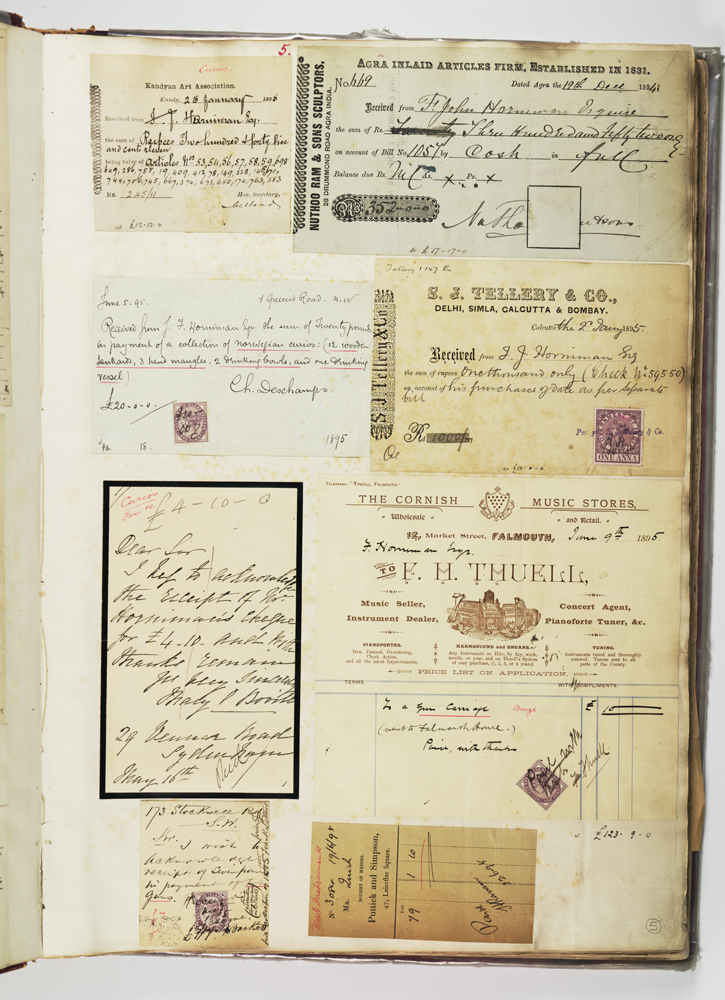 5.
Curios.
Kandyan Art Association.
Kandy, 25 January 1895
Received from F. J. Horniman Esq.
the sum of Rupees Two hundred & forty five
and cents eleven
being value of Articles No. 53, 54, 56, 57, 58, 59, 698
Rs. 245/11
Hon. Secretary.
£12-12-0
NUTHOO RAM & SONS SCULPTORS.
28 DRUMMOND ROAD AGRA INDIA.
AGRA INLAID ARTICLES FIRM, ESTABLISHED IN 1831.
No 669
Dated Agra the 19th Dec 1894
Received from F. John Horniman Esquire
the sum of Rs. Three Hundred and fifty two only
on account of Bill No. 1057 by Cash in full
Balance due Rs. Nil As. x Ps. x
Rs 352-0-0
£17-17-0
June 5. 95.
1 Queen's Road. N.W
Received from J. F. Horniman Esq the sum of Twenty pounds
in payment of a collection of norwegian curios: (12 wooden
tankards, 3 hand mangles, 2 drinking bowls, and one drinking
vessel)
Ch. Deschamps.
£20-0-0
18
1895
Tellery
S. J. Tellery & Co.
S. J. TELLERY & CO.,
DELHI, SIMLA, CALCUTTA & BOMBAY.
Calcutta the 2d Jany 1895.
Received from F. J. Horniman Esq
the sum of rupees One thousand only (Check No. 59550)
on account of his purchases of date as per separate
bill
Rs 1000/-
& Co.
ONE ANNA
Curios
£4-10-0
Dear Sir
I beg to acknowledge
the receipt of Mr
Horniman's cheque
for £4.10. and with
thanks remain
yrs very sincerely
Mary P Bovill
29 Venner Road
Sydenham
May 16th
TELEGRAMS: "THUELL, FALMOUTH"
THE CORNISH MUSIC STORES,
Wholesale and Retail.
12, Market Street, FALMOUTH, June 9th 1895
F. Horniman Esqr.
TO F. H. THUELL,
Music Seller,
Instrument Dealer,
Concert Agent,
Pianoforte Tuner, &c.
PIANOFORTES.
Iron Framed, Overstrung,
Check Action,
and all the latest Improvements.
HARMONIUMS and ORGANS.
Any Instrument on Hire, by day, week,
month, or year, and on Thuell's System
of easy purchase, (1, 2, 3, or 4 years).
TUNING.
Instruments tuned and thoroughly
restored. Tuners sent to all
parts of the County.
PRICE LIST ON APPLICATION.
TERMS
WITH COMPLIMENTS
To a Gun Carriage
£ 10
(sent to Falmouth House.)
Paid with
thanks
F H Thuell
£123. 9. 0
173 Stockwell Rd
S.W.
Sir.
I wish
acknowledge
receipt of five pounds
in payment of
guns.
Musl Instruments
No 3080 19/6/95
Mr. Quick
BOUGHT OF MESSRS.
Puttick and Simpson,
47, Leicester Square.
Lot
79
1 10
Paid
5